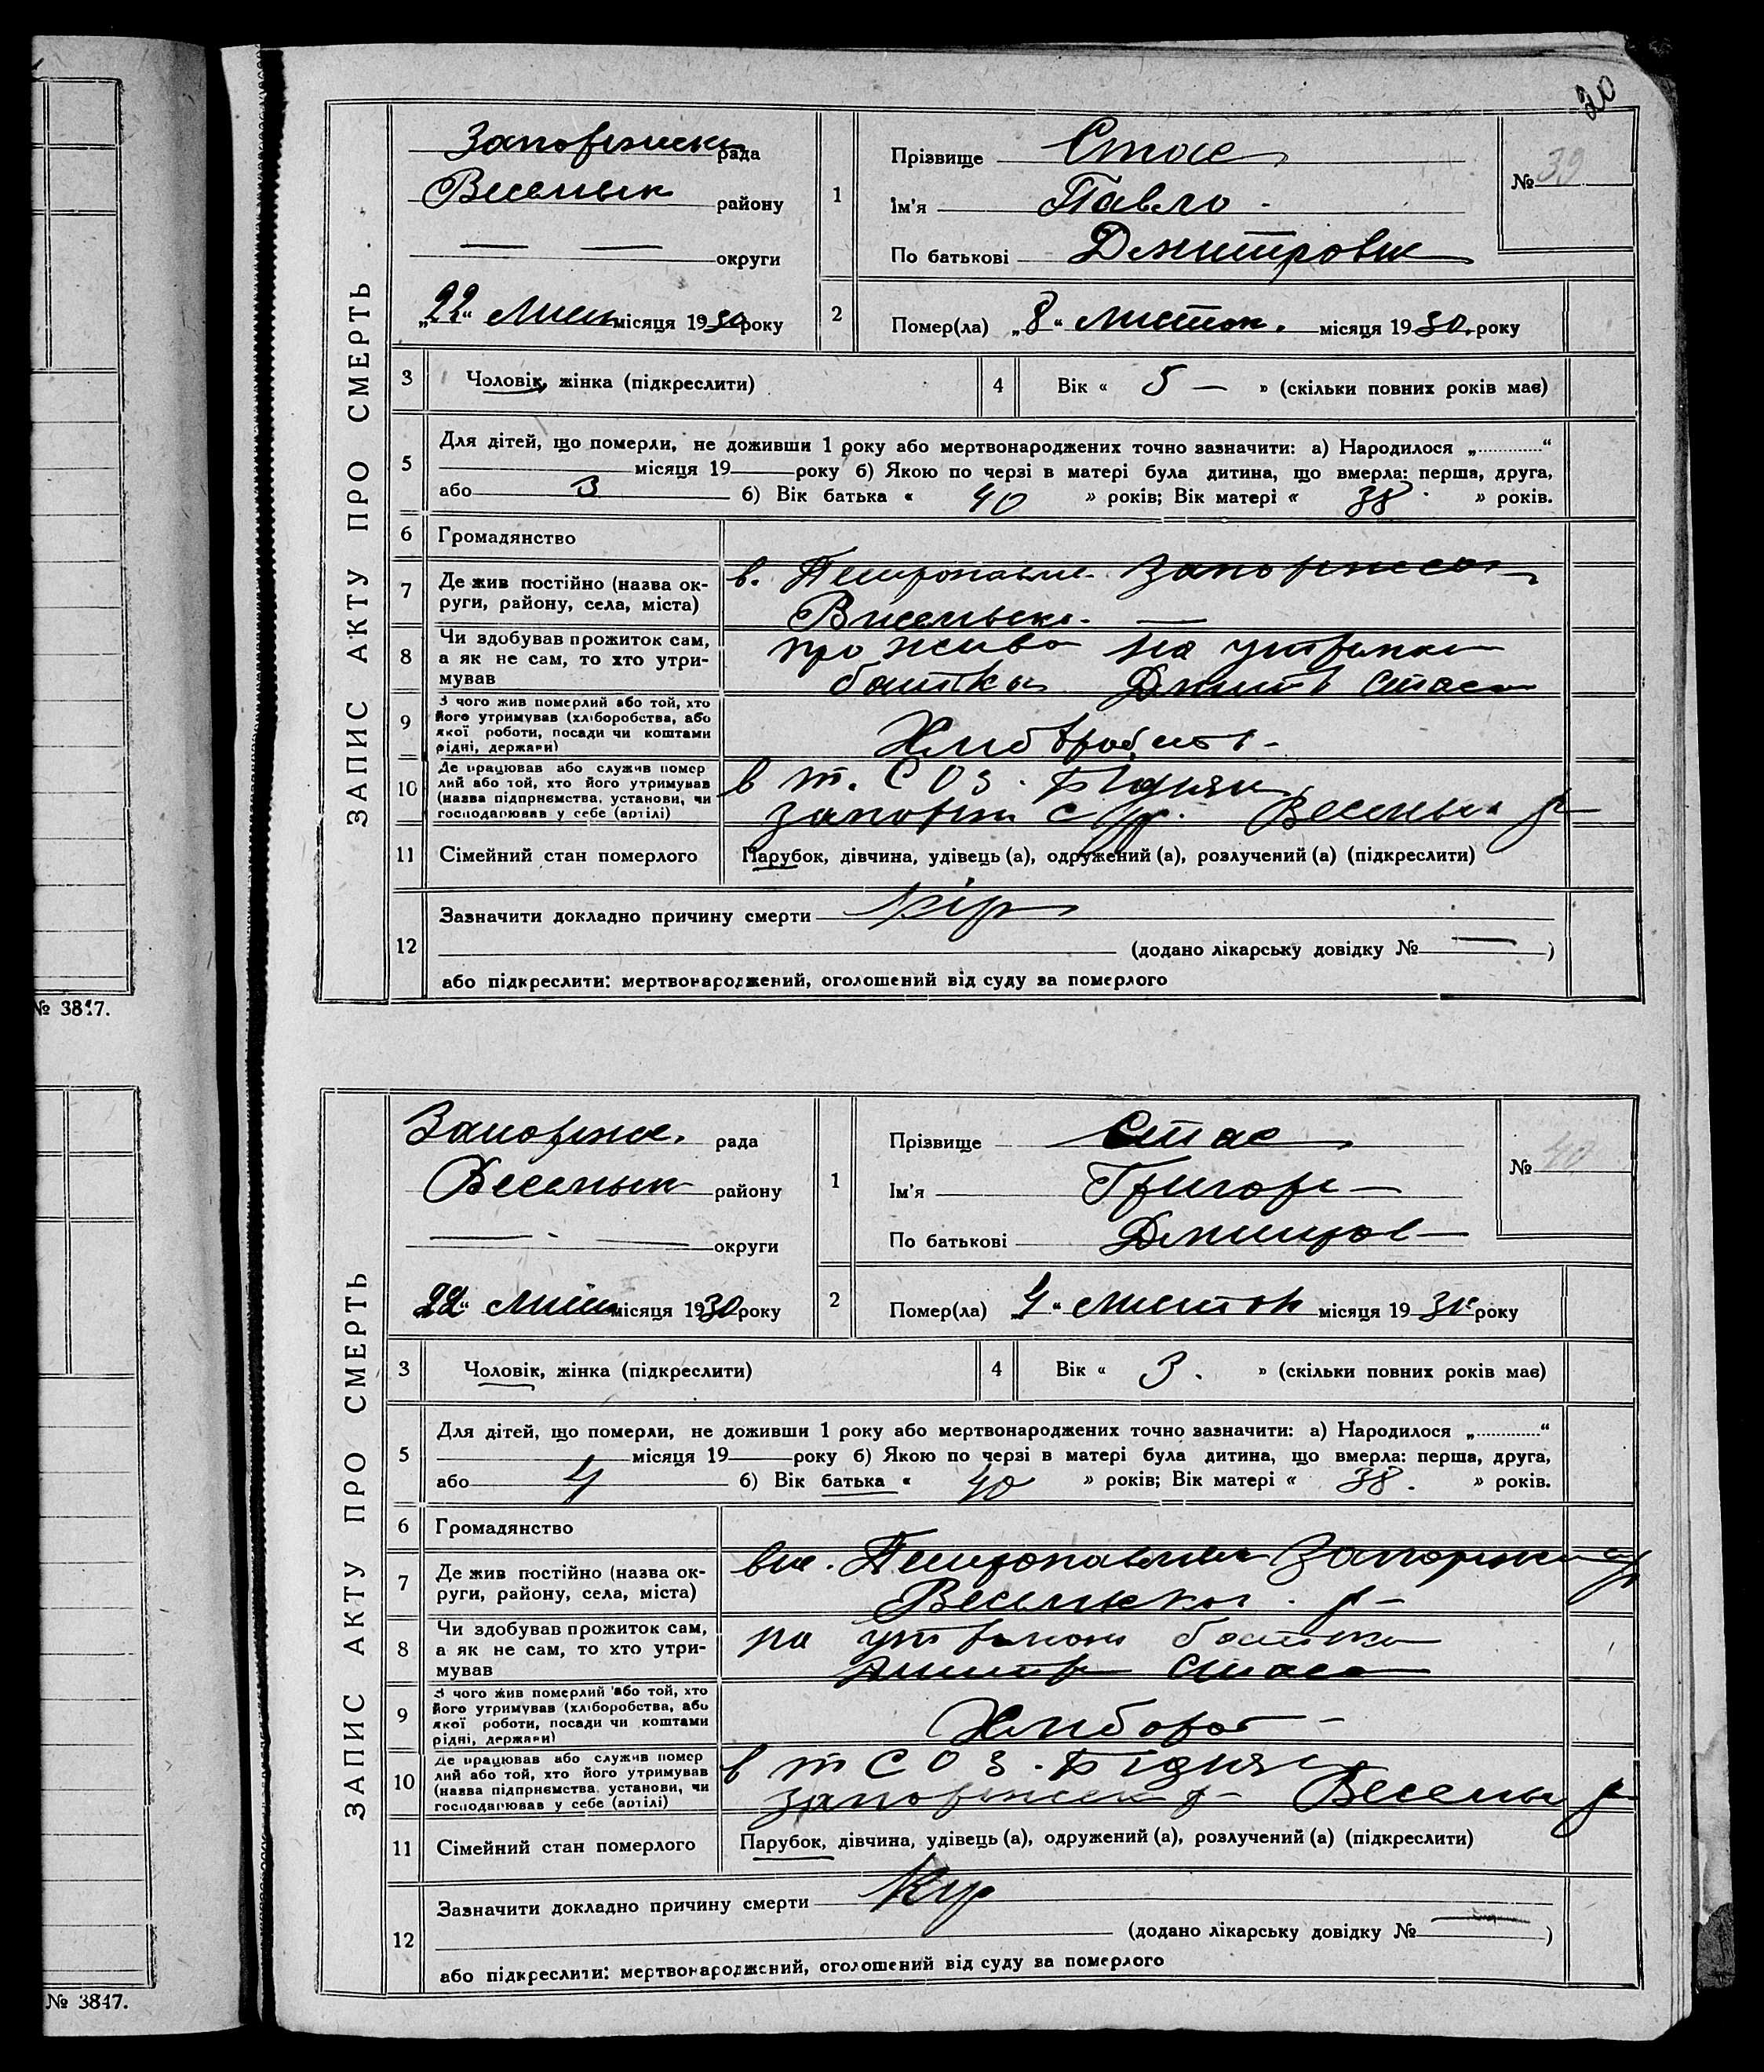 20
ЗАПИС АКТУ ПРО СМЕРТЬ
рада
району
округи
„22“ Лист місяця 1930 року
1
Прізвище Стас
Ім'я Павло
По батькові Дмитрович
№ 39
2
Помер(ла) „8“ листоп. місяця 1930 року
3
Чоловік, жінка (підкреслити)
4
Вік « 5 — » (скільки повних років має)
5
Для дітей, що померли, не доживши 1 року або мертвонароджених точно зазначити: а) Народилося „............“
місяця 19 року б) Якою по черзі в матері була дитина, що вмерла: перша, друга,
або 3 б) Вік батька « 40 » років; Вік матері « 38 » років.
6
Громадянство
7
Де жив постійно (назва ок-
руги, району, села, міста)
в.
8
Чи здобував прожиток сам,
а як не сам, то хто утри-
мував
на
батька Стаса
9
З чого жив померлий або той, хто
його утримував (хліборобства, або
якої роботи, посади чи коштами
рідні, держави)
10
Де працював або служив помер
лий або той, хто його утримував
(назва підприємства, установи, чи
господарював у себе (артілі)
в т. СОЗ.
11
Сімейний стан померлого
Парубок, дівчина, удівець (а), одружений (а), розлучений (а) (підкреслити)
12
Зазначити докладно причину смерти
(додано лікарську довідку № — )
або підкреслити: мертвонароджений, оголошений від суду за померлого
№ 3847.
ЗАПИС АКТУ ПРО СМЕРТЬ
рада
району
округи
22“ Лист місяця 1930 року
1
Прізвище Стас
Ім'я Григор
По батькові Дмитров
№ 40
2
Помер(ла) „4“ листоп місяця 1930 року
3
Чоловік, жінка (підкреслити)
4
Вік « 3. » (скільки повних років має)
5
Для дітей, що померли, не доживши 1 року або мертвонароджених точно зазначити: а) Народилося „............“
місяця 19 року б) Якою по черзі в матері була дитина, що вмерла: перша, друга,
або 4 б) Вік батька « 40 » років; Вік матері « 38. » років.
6
Громадянство
7
Де жив постійно (назва ок-
руги, району, села, міста)
8
Чи здобував прожиток сам,
а як не сам, то хто утри-
мував
на батька
Стаса
9
З чого жив померлий або той, хто
його утримував (хліборобства, або
якої роботи, посади чи коштами
рідні, держави)
Хлібороб
10
Де працював або служив помер
лий або той, хто його утримував
(назва підприємства, установи, чи
господарював у себе (артілі)
в т СОЗ.
11
Сімейний стан померлого
Парубок, дівчина, удівець (а), одружений (а), розлучений (а) (підкреслити)
12
Зазначити докладно причину смерти
(додано лікарську довідку № — )
або підкреслити: мертвонароджений, оголошений від суду за померлого
№ 3847.